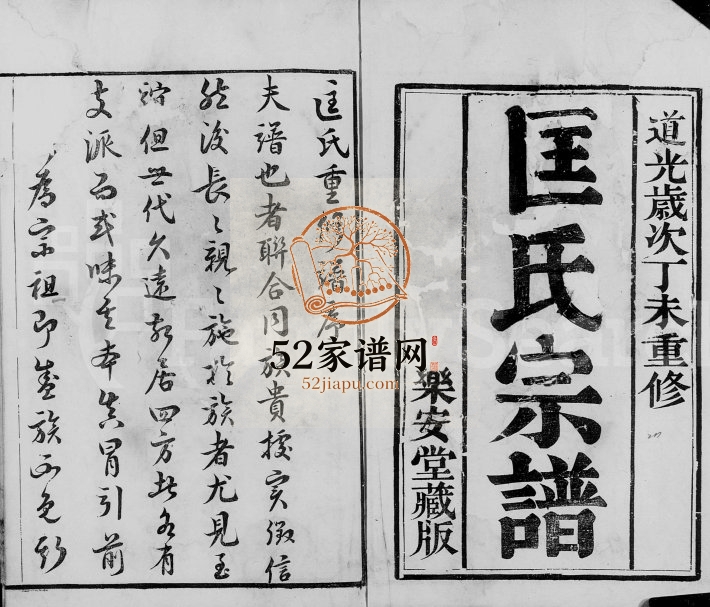 道光歲次丁未重修
匡氏宗譜
樂安堂藏版
匡氏重修譜序
夫譜也者聯合同族貴據实徵信
然後長〻親〻施於族者尤見至
但世代久遠散居四方者各有
支派而或味其本冐引前
為宗祖即盛族
52家谱网
52jiapu.com